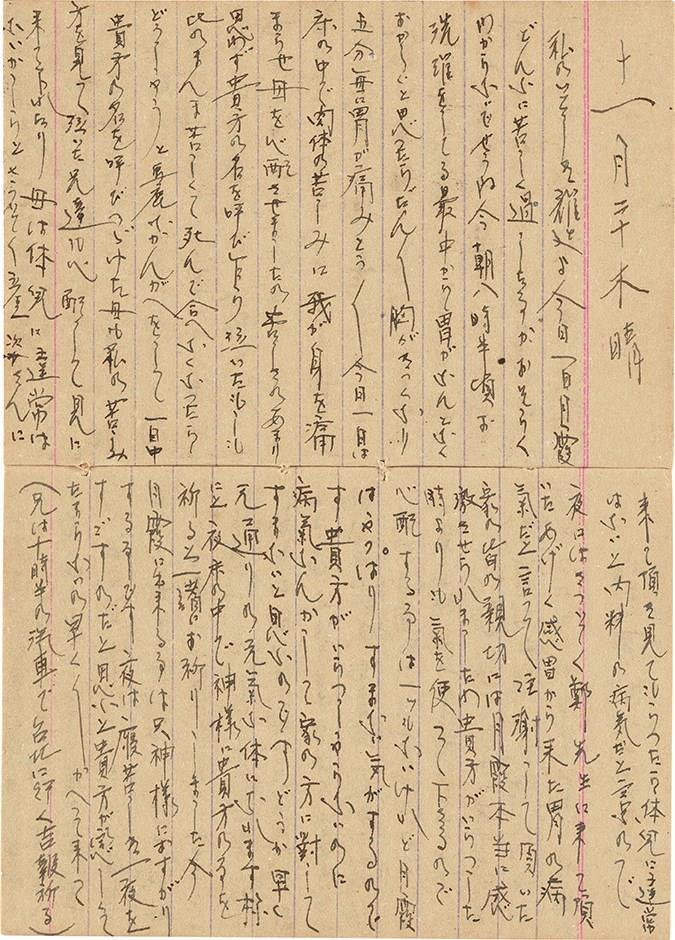 十一月二十 木 晴
私のいとしき雅夫よ今日一日月霞
どんなに苦しく過ごしたるかおそらく
わからないでせうね 今朝八時半頃お
洗濯をしてる最中から胃がなんとなく
おかしいと思ったらだん〱胸がきつくなり
五分毎に胃が痛みとう〱今日一日は
床の中で肉体の苦しみに我が身を痛
ませ母を心配させましたの 苦しさのあまり
思わず貴方の名を呼び 泣いたもし
此のまんま苦しくて死んで会へなくなったら
どうしようと馬鹿なかんがへをして一日中
貴方の名を呼びつづけた母も私の苦しみ
方を見て泣いた兄達も心配して見に
来て下されたり 母は体児に違常は
ないかしらとさうして産
来て頂き見てもらったら体児に違常
はないと内科の病気だと云ふので
夜にはさっそく鄭先生に来て頂
いたあげく感冒から来た胃の病
気だと言って注射して頂いた
家の皆の親切には月霞本当に感
激させられましたの貴方がいらっした
時よりも気を使って下さるので
心配する事は一つもないけれど月霞
はやっぱりすまない気がするので
す 貴方がいらっしゃらないのに
病気なんかして家の方に対して
すまないと思ふのです どうか早く
元通りの元気な体になります様
にと夜床の中で神様に貴方の事を
祈ると一緒にお祈りしました 今
月霞に出来る事は只神様におすがり
する事です 夜は腹苦しき一夜を
すごすのだと思ふと貴方が恋しくて
たまらないの早く〱かへって来て
(兄は十時半の汽車で台北に行く吉報祈る)